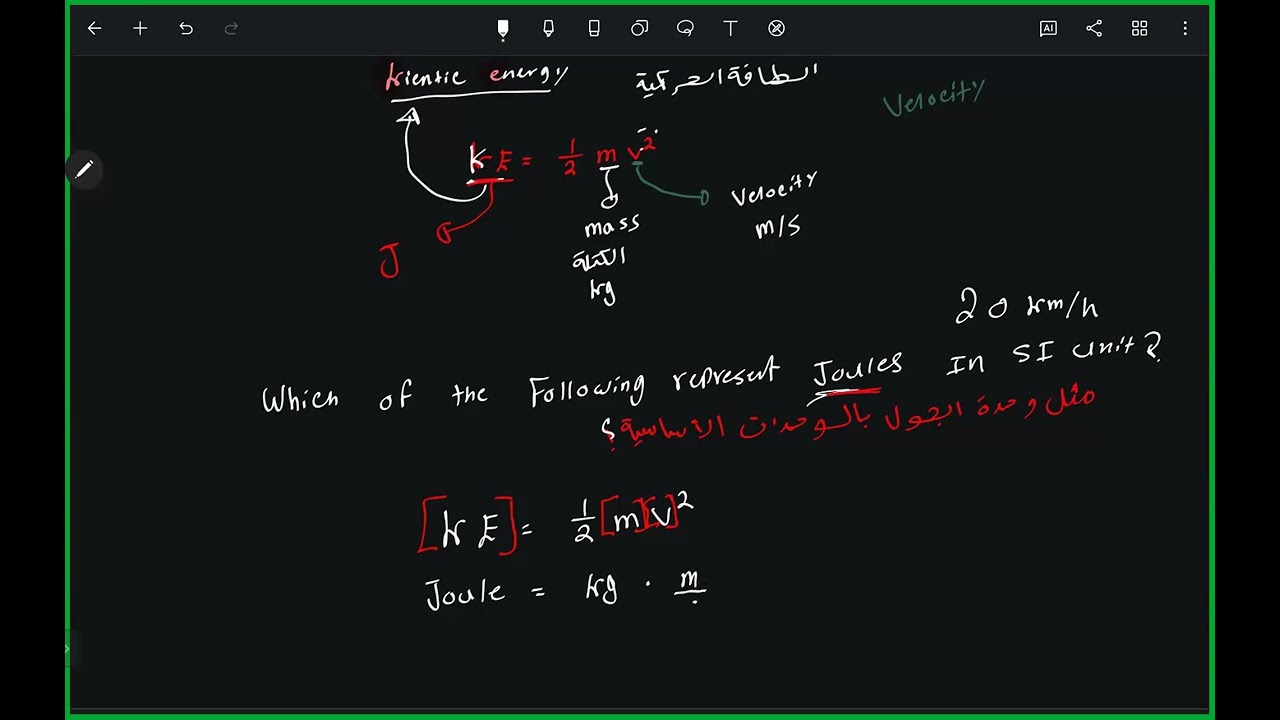 kientic energy الطاقة الحركية
Velocity
KE = 1/2 m v²
Velocity
m/s
mass
الكتلة
kg
J
20 km/h
Which of the Following represent Joules In SI unit?
مثل وحدة الجول بالوحدات الأساسية؟
[KE] = 1/2 [m][v]²
Joule = kg . m
T
AI